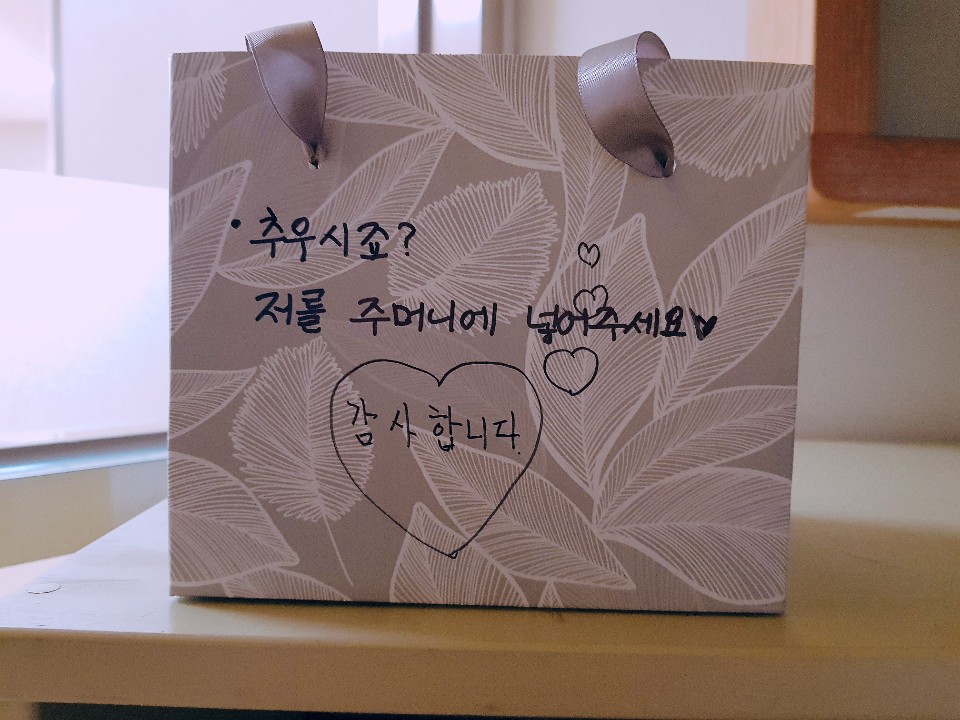 • 추우시죠?
저를 주머니에 넣어주세요♥
감사합니다.